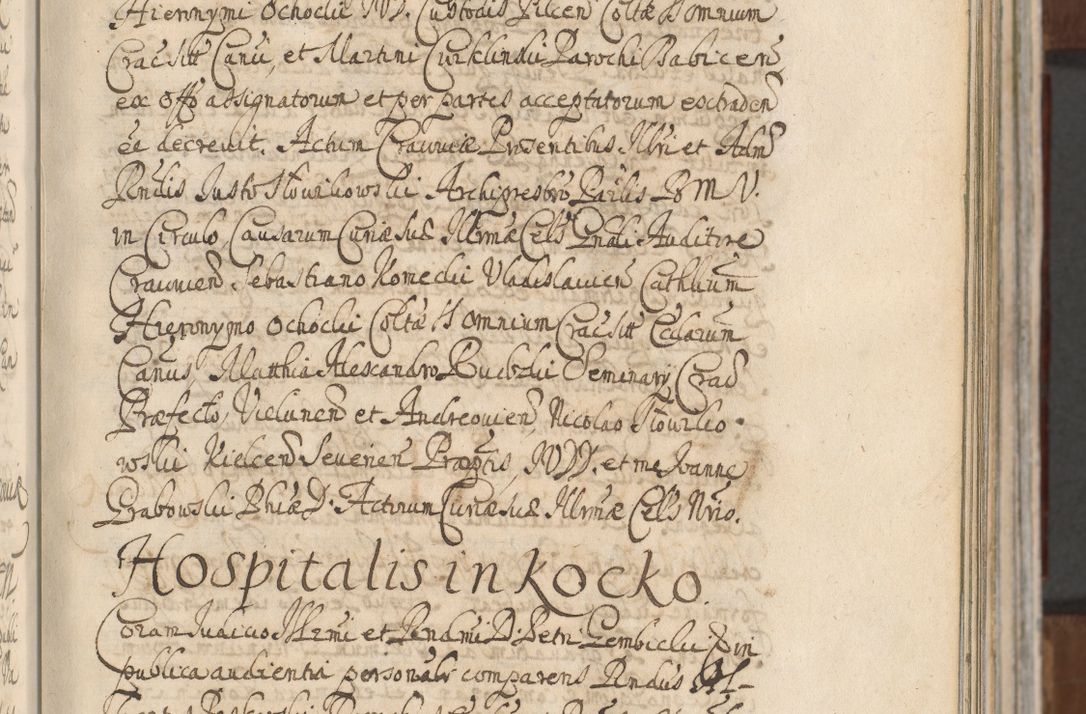 Hieronymi Ochocki JVD. Custodis Pilcen Coltae SS Omnium
Crac Sitt Canci, et Martini Curklinski Parochi Babicen
ex offo assignatorum et per partes acceptatorum extraden
ee decrevit. Actum Cracoviae Praesentibus Illri et Adm
Rndis Justo Słowikowski Archipresbro Paelis B M V.
in Circulo, Causarum Curiae Suae Illrmae Cels Gnali Auditore
Cracovien Sebastiano Komecki Vladislavien Cathlium
Hieronymo Ochocki Coltae SS Omnium Crac Sitt Ecclarum
Cancis, Matthia Alexandro Budzki Seminarij Crac
Praefecto, Vielunen et Andreovien, Nicolao Słowiko
wski Kielcen Severien Praeptis, JVDD. et me Joanne
Grabowski Phiae D. Actorum Curiae Suae Illrmae Cels Nrio.
Hospitalis in Kocko.
Coram Judicio Illrmi et Rndmi D. Petri Gembicki Epi in
publica audientia personalr comparens Rndus Al-